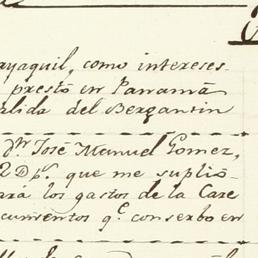 ayaquil, como intereses
prestó en Panamá
alida del Bergantin
Dn José Manuel Gomez,
2 Dbs. que me suplio
ará los gastos de la Care
cumentos qe conserbo en